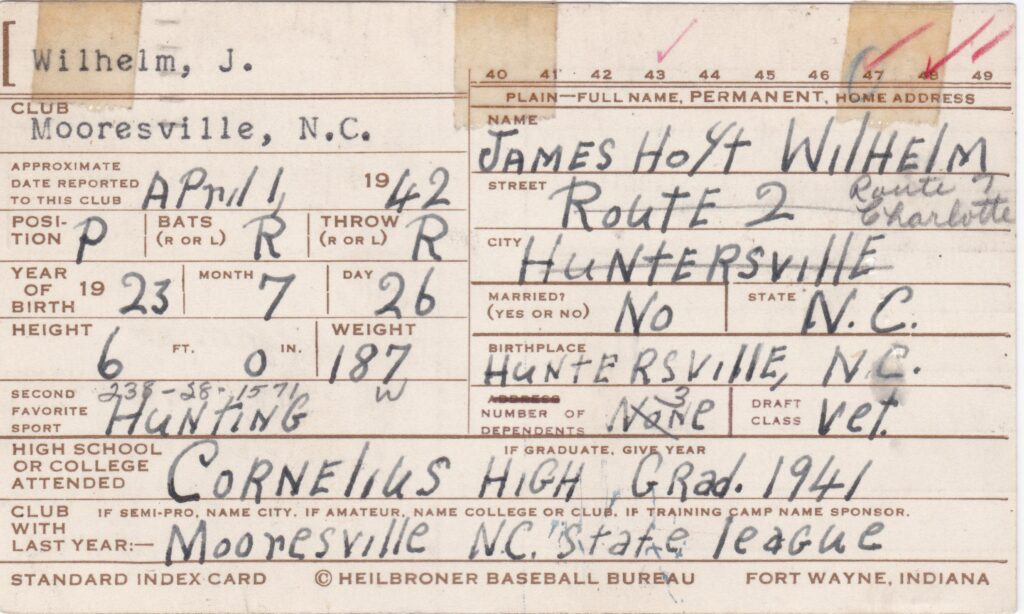 Wilhelm, J.
40 41 42 43 44 45 46 47 48 49
PLAIN—FULL NAME, PERMANENT, HOME ADDRESS
CLUB
Mooresville, N.C.
NAME
JAMES HOYT WILHELM
APPROXIMATE
DATE REPORTED
TO THIS CLUB APRIL 1, 1942
STREET
ROUTE 2
Route 7
Charlotte
POSI-
TION P
BATS
(R OR L) R
THROW
(R OR L) R
CITY
HUNTERSVILLE
YEAR
OF
BIRTH 1923
MONTH 7
DAY 26
MARRIED?
(YES OR NO) No
STATE N.C.
HEIGHT
6 FT. 0 IN.
WEIGHT
187
W
BIRTHPLACE
HUNTERSVILLE, N.C.
238-28-1571
SECOND
FAVORITE
SPORT HUNTING
ADDRESS
NUMBER OF
DEPENDENTS NONE 3
DRAFT
CLASS vet.
HIGH SCHOOL
OR COLLEGE
ATTENDED
IF GRADUATE, GIVE YEAR
CORNELIUS HIGH GRad. 1941
CLUB
WITH
LAST YEAR:—
IF SEMI-PRO, NAME CITY. IF AMATEUR, NAME COLLEGE OR CLUB. IF TRAINING CAMP NAME SPONSOR.
Mooresville N.C. State league
STANDARD INDEX CARD © HEILBRONER BASEBALL BUREAU FORT WAYNE, INDIANA